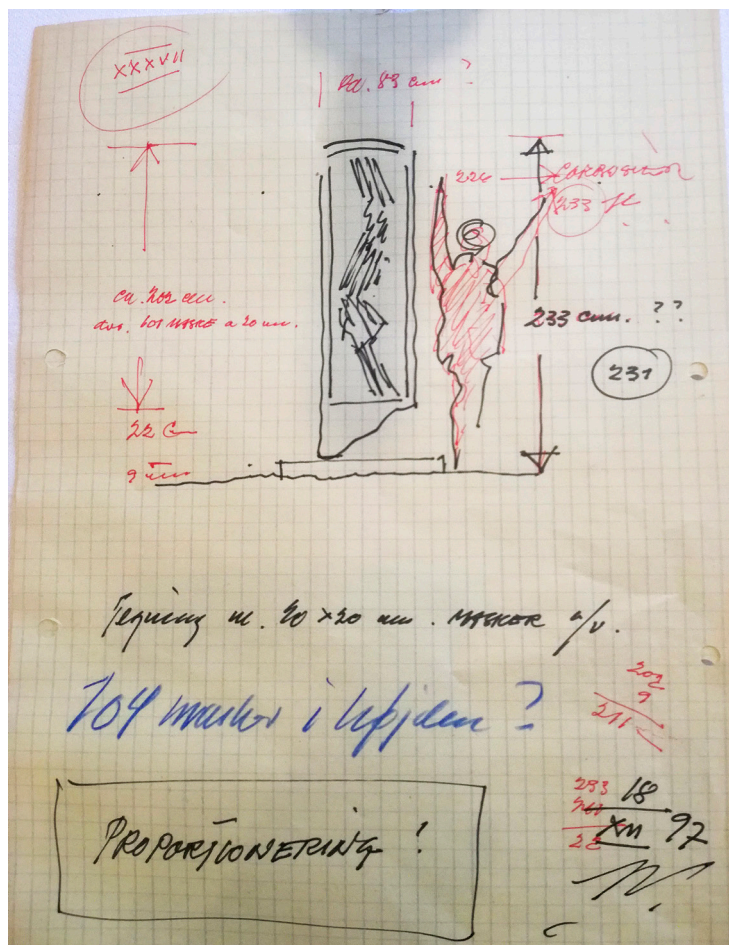 XXXVII
ca. 83 cm ?
226
233
ca. 202 cm.
dvs. 101 MASKE a 20 mm.
233 cm. ??
231
22 cm
9 cm
Tegning m. 20 x 20 cm. MASKER
104 masker i højden ?
202
9
211
PROPORTIONERING !
233
22
18
XII 97